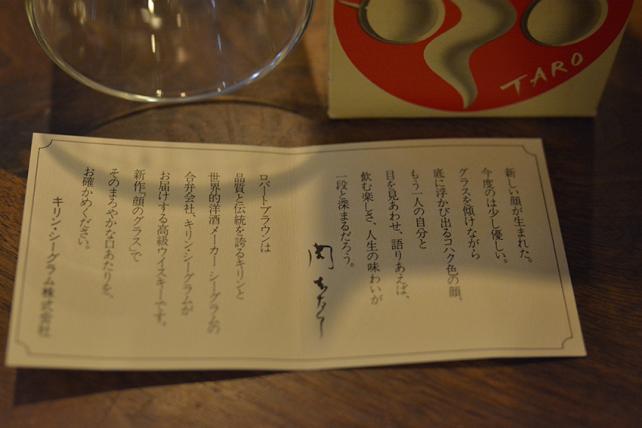 TARO
新しい顔が生まれた。
今度のは少し優しい。
グラスを傾けながら
底に浮かび出るコハク色の顔、
もう一人の自分と
目を見あわせ、語りあえば、
飲む楽しさ、人生の味わいが
一段と深まるだろう。
ロバートブラウンは
品質と伝統を誇るキリンと
世界的洋酒メーカー シーグラムの
合弁会社、キリン・シーグラムが
お届けする高級ウイスキーです。
新作「顔のグラス」で
そのまろやかな口あたりを、
お確かめください。
キリン・シーグラム株式会社